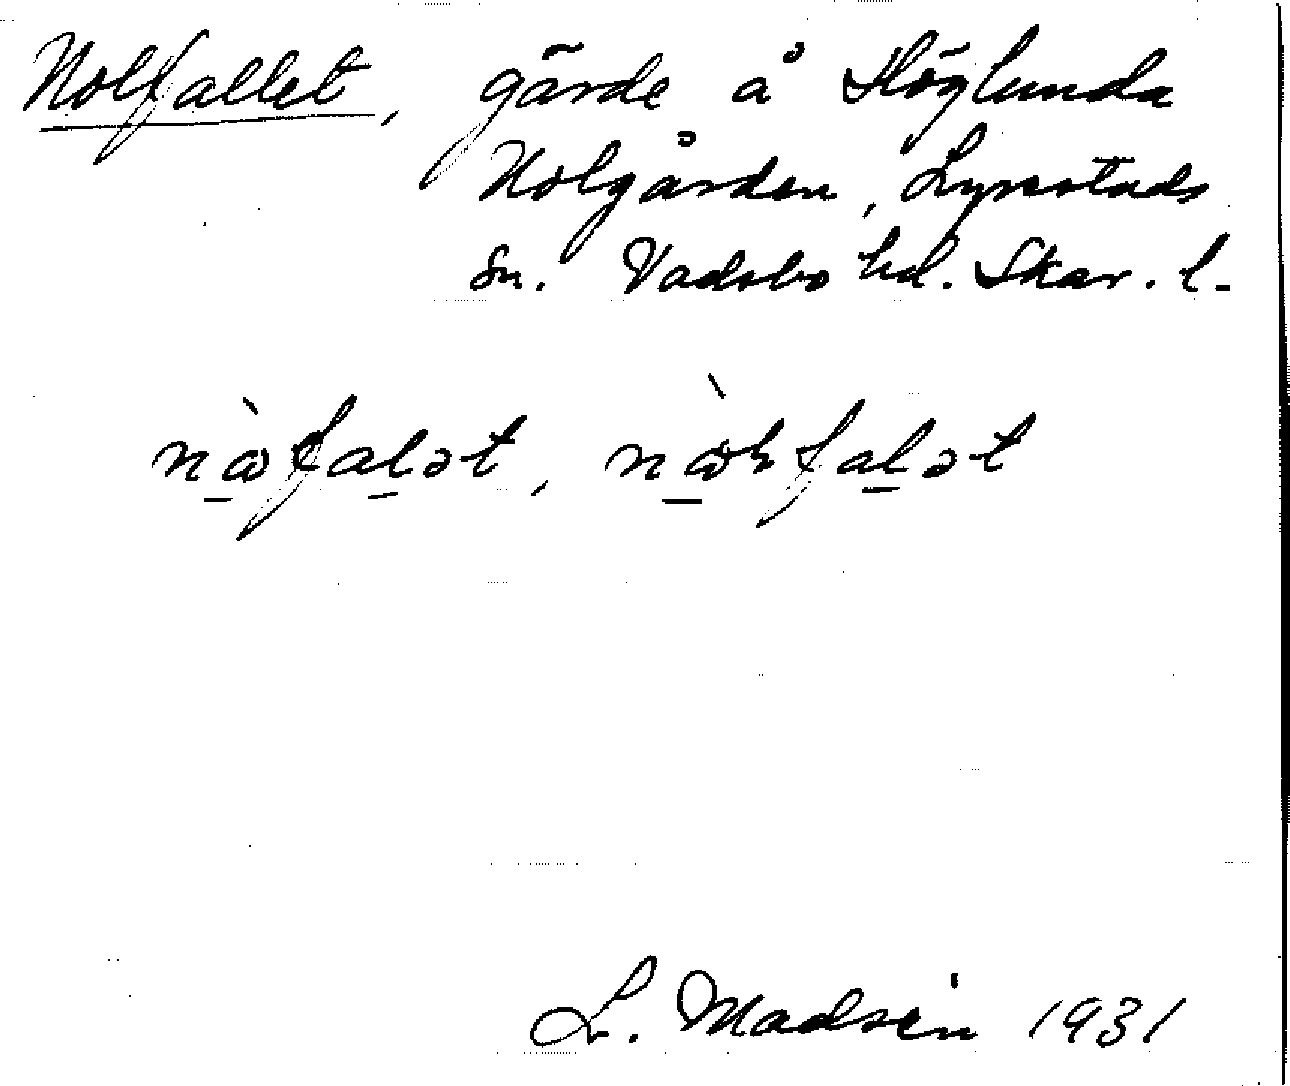 Nolfallet, gärde å Höglunda
Nolgården, Lyrestads
sn. Vadsbo hd. Skar. l.
nὼfaLət, nὼɽfaLət
L. Madsén 1931